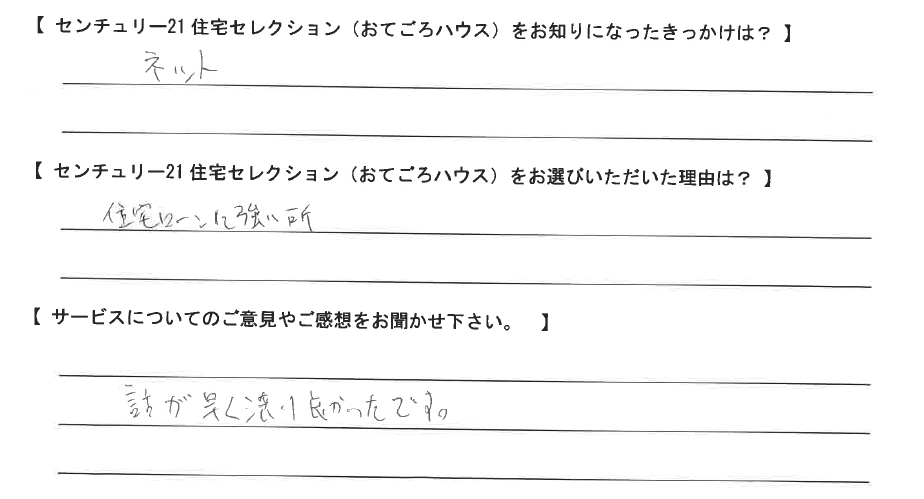 【 センチュリー21 住宅セレクション（おてごろハウス）をお知りになったきっかけは？ 】
ネット
【 センチュリー21 住宅セレクション（おてごろハウス）をお選びいただいた理由は？ 】
住宅ローンに強い所
【 サービスについてのご意見やご感想をお聞かせ下さい。 】
話が早く 良かったです。